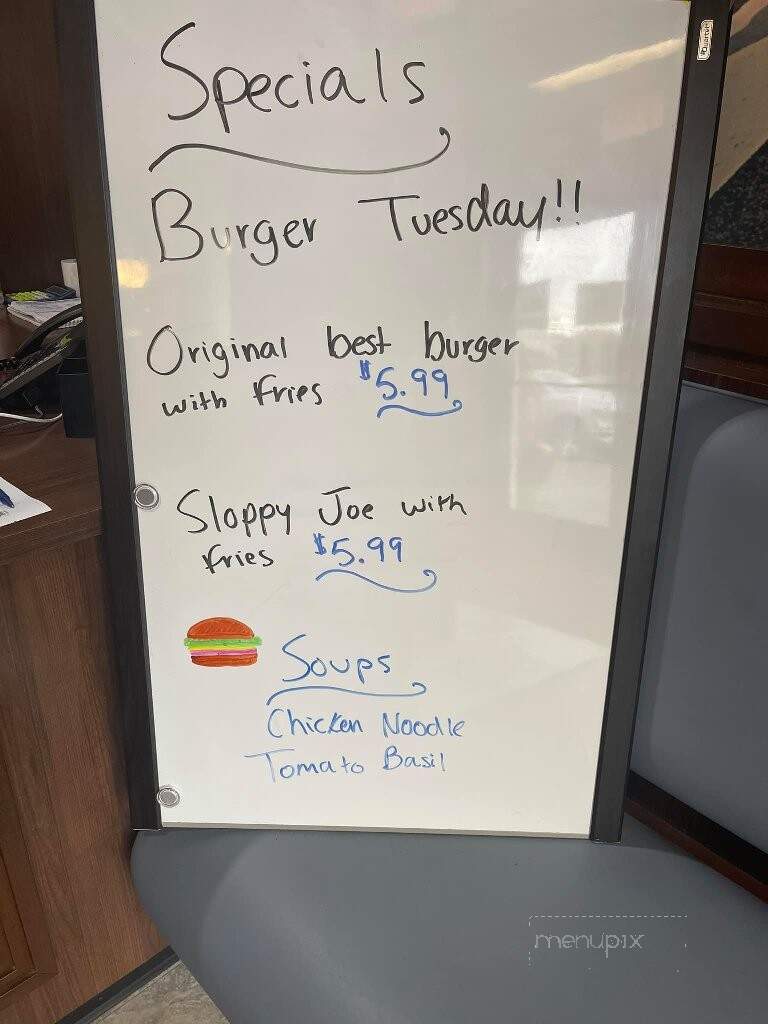 Specials
Burger Tuesday!!
Original best burger
with fries $5.99
Sloppy Joe with
fries $5.99
Soups
Chicken Noodle
Tomato Basil
Quartet
menupix